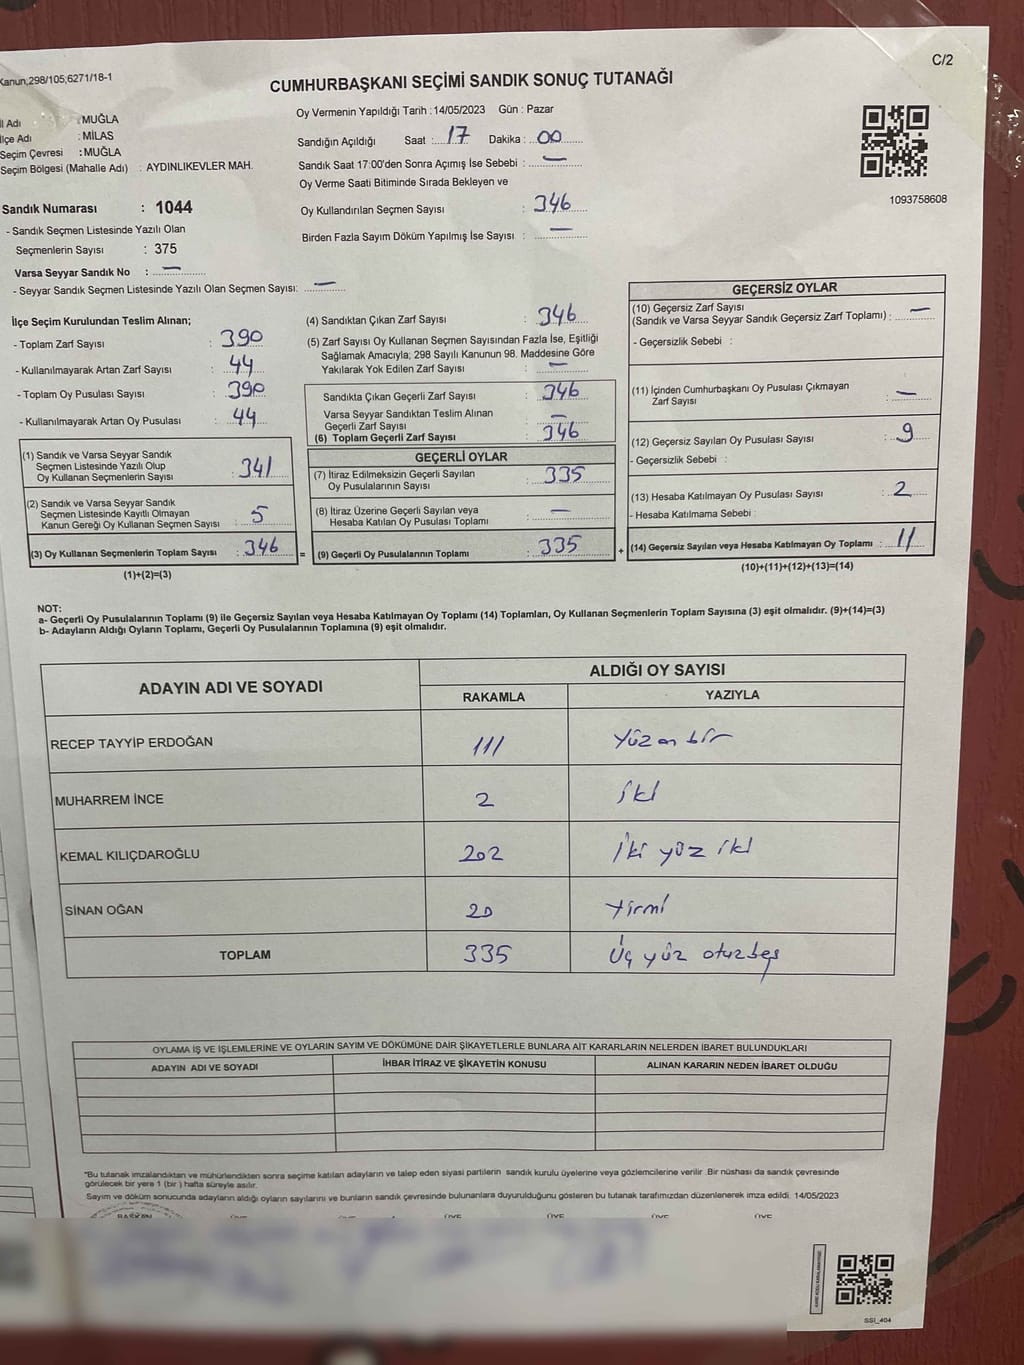 Kanun;298/105;6271/18-1
C/2
CUMHURBAŞKANI SEÇİMİ SANDIK SONUÇ TUTANAĞI
İl Adı : MUĞLA
İlçe Adı : MİLAS
Seçim Çevresi : MUĞLA
Seçim Bölgesi (Mahalle Adı) : AYDINLIKEVLER MAH.
Sandık Numarası : 1044
- Sandık Seçmen Listesinde Yazılı Olan
Seçmenlerin Sayısı : 375
Varsa Seyyar Sandık No : —
- Seyyar Sandık Seçmen Listesinde Yazılı Olan Seçmen Sayısı: —
Oy Vermenin Yapıldığı Tarih : 14/05/2023 Gün : Pazar
Sandığın Açıldığı Saat : 17 Dakika : 00
Sandık Saat 17:00'den Sonra Açımış İse Sebebi : —
Oy Verme Saati Bitiminde Sırada Bekleyen ve
Oy Kullandırılan Seçmen Sayısı : 346
Birden Fazla Sayım Döküm Yapılmış İse Sayısı : —
1093758608
İlçe Seçim Kurulundan Teslim Alınan;
- Toplam Zarf Sayısı : 390
- Kullanılmayarak Artan Zarf Sayısı : 44
- Toplam Oy Pusulası Sayısı : 390
- Kullanılmayarak Artan Oy Pusulası : 44
(1) Sandık ve Varsa Seyyar Sandık
Seçmen Listesinde Yazılı Olup
Oy Kullanan Seçmenlerin Sayısı : 341
(2) Sandık ve Varsa Seyyar Sandık
Seçmen Listesinde Kayıtlı Olmayan
Kanun Gereği Oy Kullanan Seçmen Sayısı : 5
(3) Oy Kullanan Seçmenlerin Toplam Sayısı : 346
(1)+(2)=(3)
(4) Sandıktan Çıkan Zarf Sayısı : 346
(5) Zarf Sayısı Oy Kullanan Seçmen Sayısından Fazla İse, Eşitliği
Sağlamak Amacıyla; 298 Sayılı Kanunun 98. Maddesine Göre
Yakılarak Yok Edilen Zarf Sayısı : —
Sandıkta Çıkan Geçerli Zarf Sayısı : 346
Varsa Seyyar Sandıktan Teslim Alınan
Geçerli Zarf Sayısı : —
(6) Toplam Geçerli Zarf Sayısı : 346
GEÇERLİ OYLAR
(7) İtiraz Edilmeksizin Geçerli Sayılan
Oy Pusulalarının Sayısı : 335
(8) İtiraz Üzerine Geçerli Sayılan veya
Hesaba Katılan Oy Pusulası Toplamı : —
= (9) Geçerli Oy Pusulalarının Toplamı : 335
GEÇERSİZ OYLAR
(10) Geçersiz Zarf Sayısı
(Sandık ve Varsa Seyyar Sandık Geçersiz Zarf Toplamı) : —
- Geçersizlik Sebebi :
(11) İçinden Cumhurbaşkanı Oy Pusulası Çıkmayan
Zarf Sayısı : —
(12) Geçersiz Sayılan Oy Pusulası Sayısı : 9
- Geçersizlik Sebebi :
(13) Hesaba Katılmayan Oy Pusulası Sayısı : 2
- Hesaba Katılmama Sebebi :
+ (14) Geçersiz Sayılan veya Hesaba Katılmayan Oy Toplamı : 11
(10)+(11)+(12)+(13)=(14)
NOT:
a- Geçerli Oy Pusulalarının Toplamı (9) ile Geçersiz Sayılan veya Hesaba Katılmayan Oy Toplamı (14) Toplamları, Oy Kullanan Seçmenlerin Toplam Sayısına (3) eşit olmalıdır. (9)+(14)=(3)
b- Adayların Aldığı Oyların Toplamı, Geçerli Oy Pusulalarının Toplamına (9) eşit olmalıdır.
ADAYIN ADI VE SOYADI
ALDIĞI OY SAYISI
RAKAMLA YAZIYLA
RECEP TAYYİP ERDOĞAN 111 Yüz on bir
MUHARREM İNCE 2 iki
KEMAL KILIÇDAROĞLU 202 İki yüz iki
SİNAN OĞAN 20 Yirmi
TOPLAM 335 Üç yüz otuzbeş
OYLAMA İŞ VE İŞLEMLERİNE VE OYLARIN SAYIM VE DÖKÜMÜNE DAİR ŞİKAYETLERLE BUNLARA AİT KARARLARIN NELERDEN İBARET BULUNDUKLARI
ADAYIN ADI VE SOYADI İHBAR İTİRAZ VE ŞİKAYETİN KONUSU ALINAN KARARIN NEDEN İBARET OLDUĞU
"Bu tutanak imzalandıktan ve mühürlendikten sonra seçime katılan adayların ve talep eden siyasi partilerin sandık kurulu üyelerine veya gözlemcilerine verilir. Bir nüshası da sandık çevresinde
görülecek bir yere 1 (bir ) hafta süreyle asılır.
Sayım ve döküm sonucunda adayların aldığı oyların sayılarını ve bunların sandık çevresinde bulunanlara duyurulduğunu gösteren bu tutanak tarafımızdan düzenlenerek imza edildi. 14/05/2023
BAŞKAN ÜYE ÜYE ÜYE ÜYE ÜYE ÜYE
SSI_404